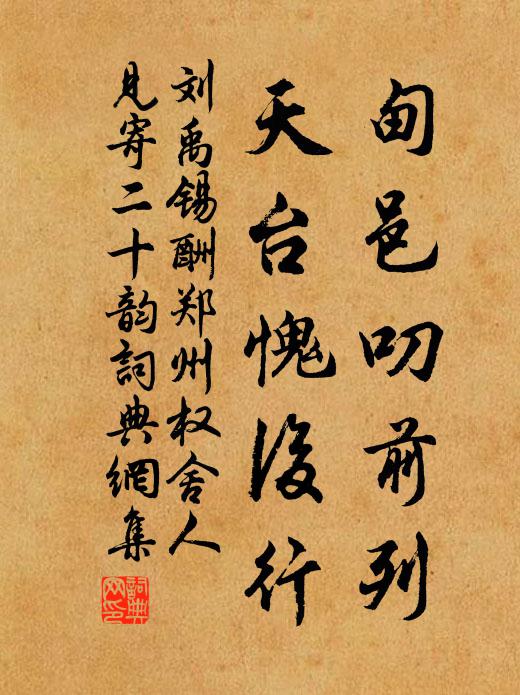 甸邑叨前列
天台愧後行
刘禹锡酬郑州权舍人
見寄二十韵詞典網集
詞典
网印